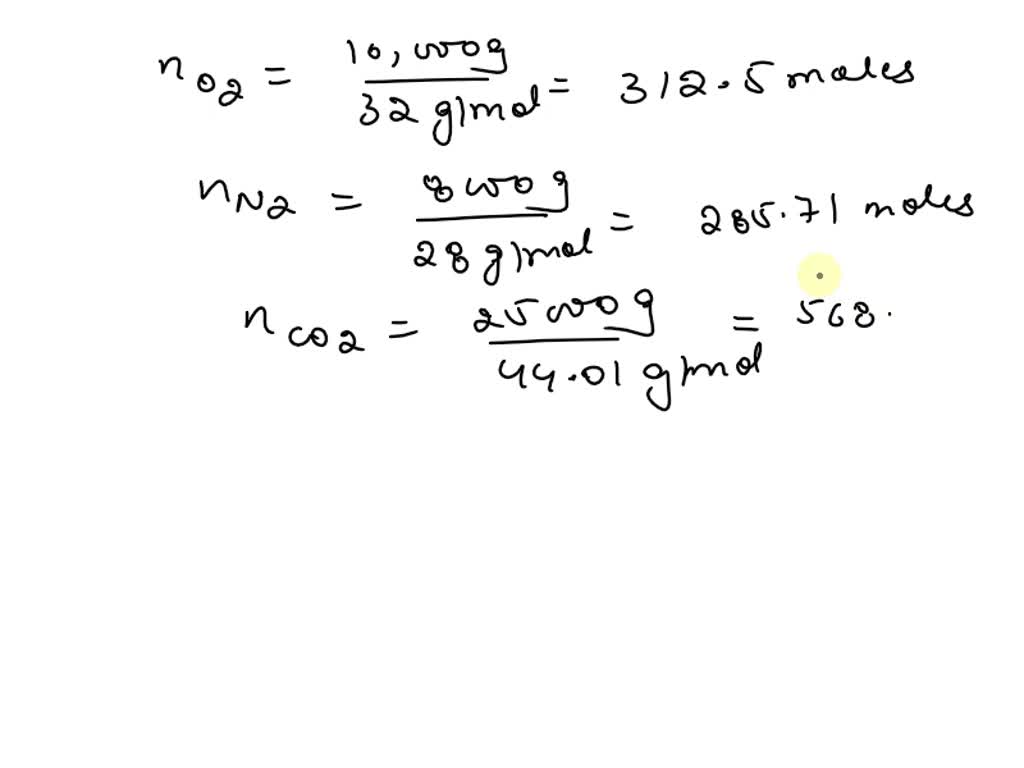 nO2 = 10,000g / 32 g/mol = 312.5 moles
nN2 = 8000g / 28 g/mol = 285.71 moles
nCO2 = 25000g / 44.01 g/mol = 568.